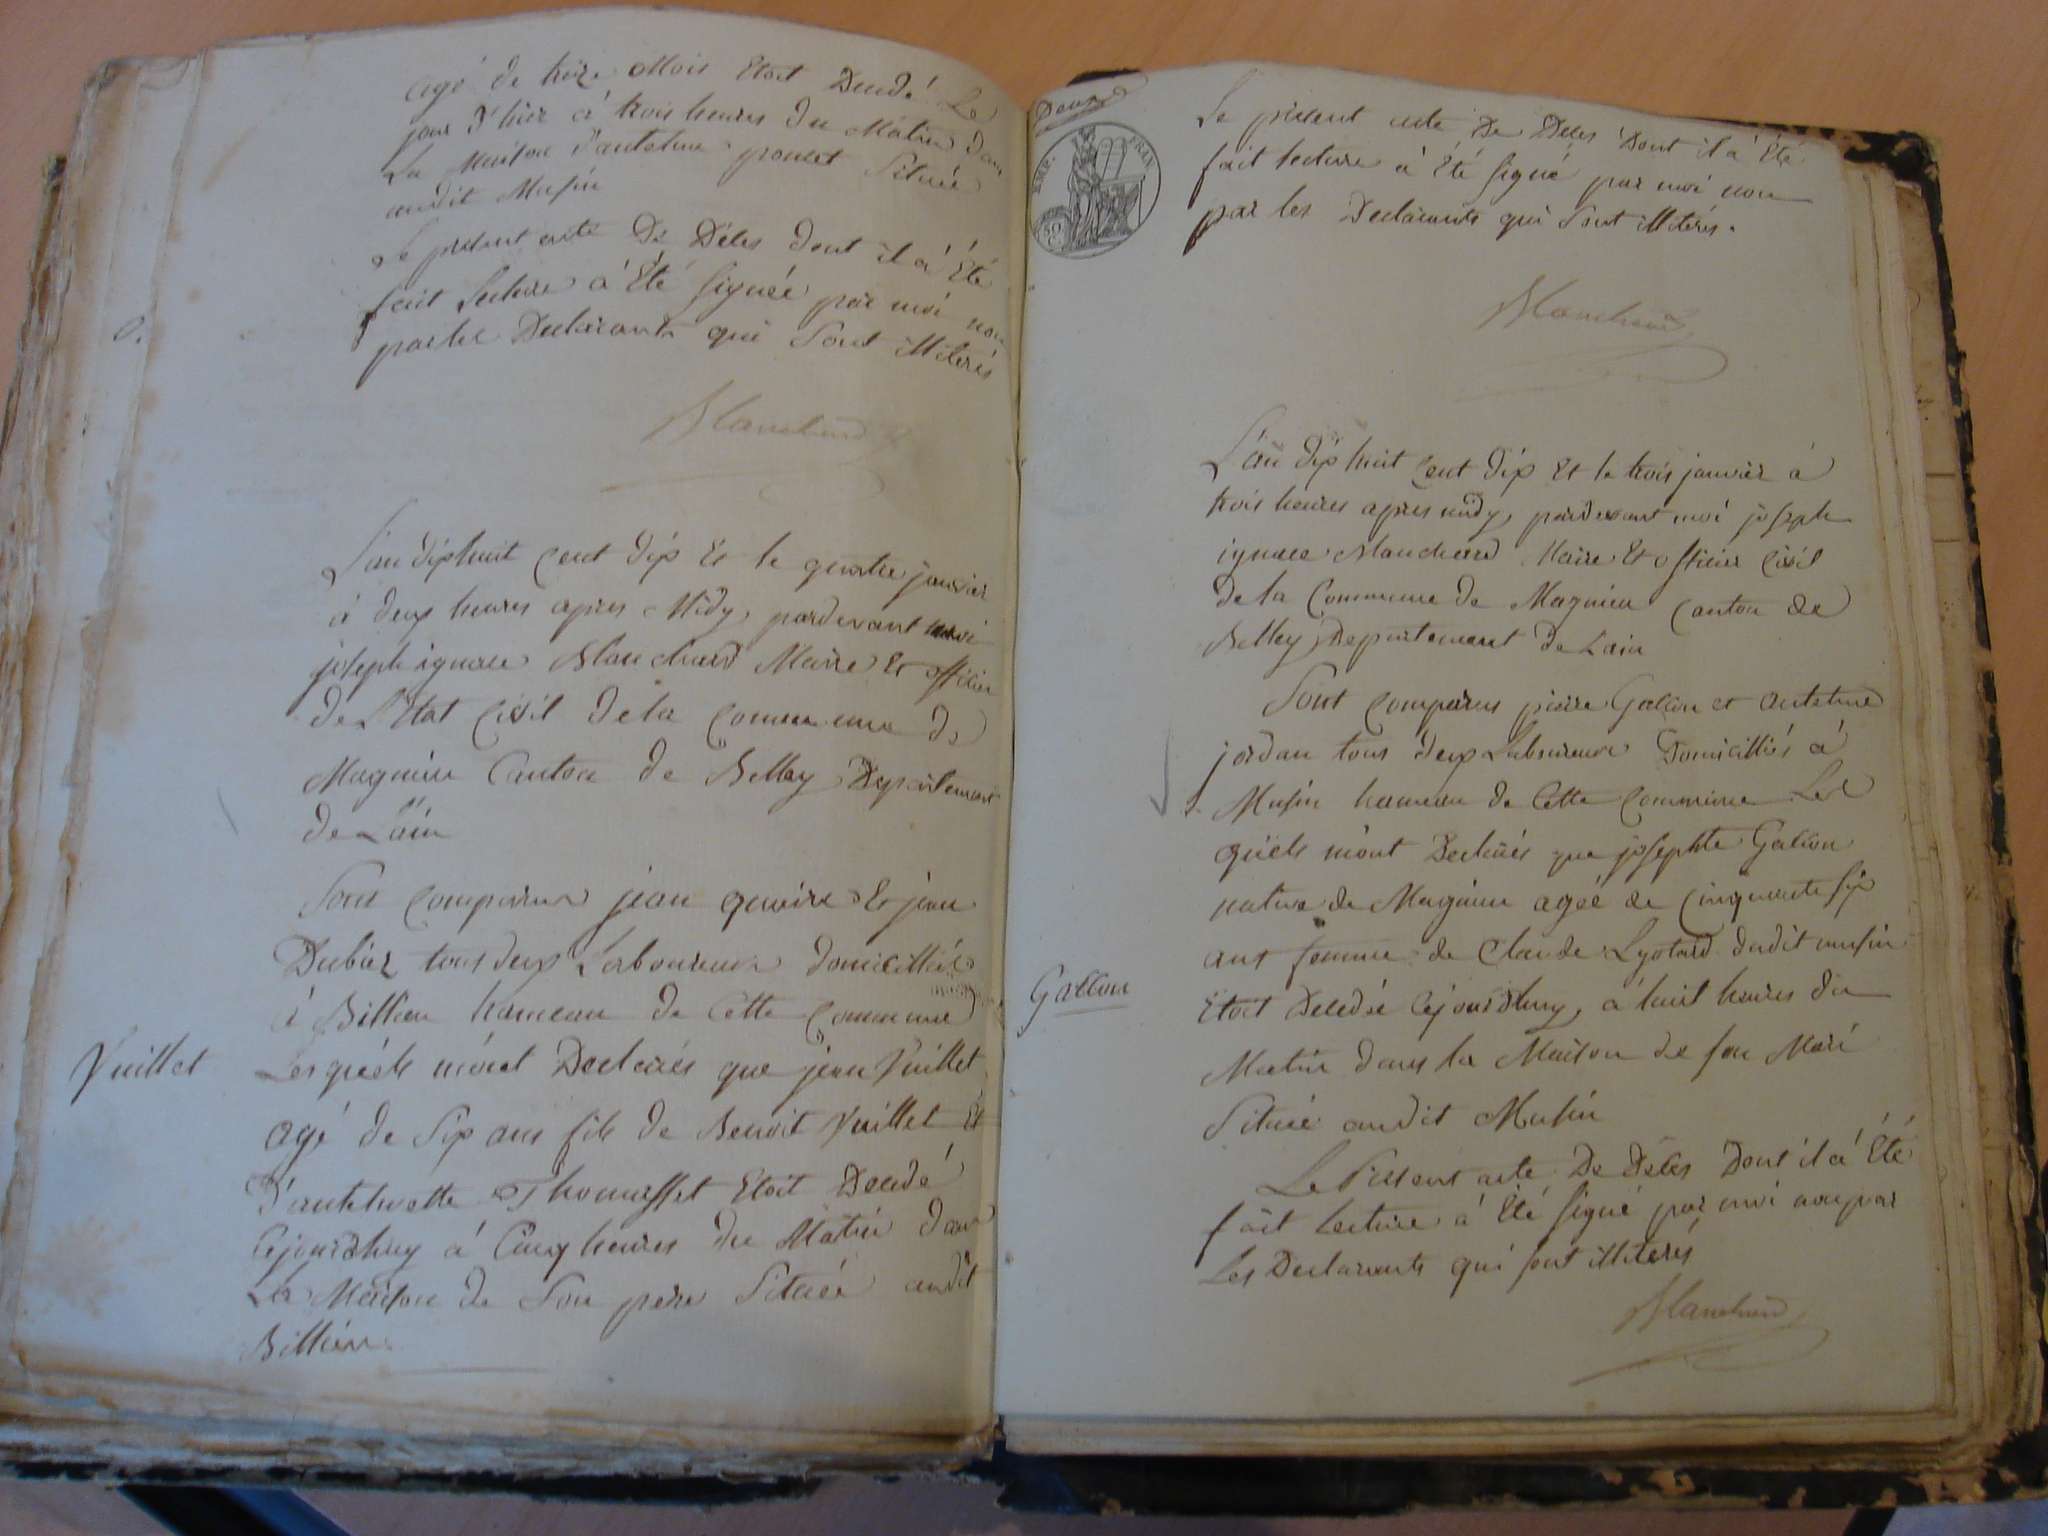 agé de treize Mois Etoit Decedé Le
jour d'hier à trois heures du Matin dans
La Maison d'antelme poncet Située
audit Musin
Le présent acte De Déces dont il a Eté
fait Lecture a Eté signée par moi non
par les Declarants qui Sont illiterés
Blanchard
L'an dixhuit Cent dix Et le quatre janvier
à deux heures apres Midy, pardevant moi
joseph ignace Blanchard Maire Et officier
de L'Etat Civil de la Commune de
Magnieu Canton de Belley Département
de L'ain
Sont Comparus jean Et jean
Dubiez tous deux Laboureurs domicilliés
à Billieu hameau de Cette Commune
Vuillet
Les quéls m'ont Declarés que jean Vuillet
agé de Six ans fils de Benoit Vuillet Et
d'anthelmette Thomasset Etoit Decedé
Cejourdhuy à Cinq heures du Matin dans
La Maison de Son pere Située audit
Billieu
EMP. FRAN
50 C.
Le présent acte De Déces Dont il a Eté
fait lecture à Eté signé par moi non
par les Declarants qui Sont illiterés.
Blanchard
L'an dix huit Cent dix Et le trois janvier à
trois heures apres midy, pardevant moi joseph
ignace Blanchard Maire Et officier Civil
de la Commune de Magnieu Canton de
Belley Departement de L'ain
Sont Comparus pierre Gallon et antelme
jordan tous deux Laboureurs Domicilliés à
Musin hameau de Cette Commune Les
quéls m'ont Declarés que josephte Gallon
native de Magnieu agée de Cinquante Six
ans femme de Claude Lyotard dudit musin
Gallon
Etoit Decedée Cejourdhuy, à huit heures du
Matin dans la Maison de son Mari
Située audit Musin
Le Présent acte De Déces Dont il a Eté
fait lecture à Eté signé par moi non par
Les Declarants qui sont illiterés
Blanchard